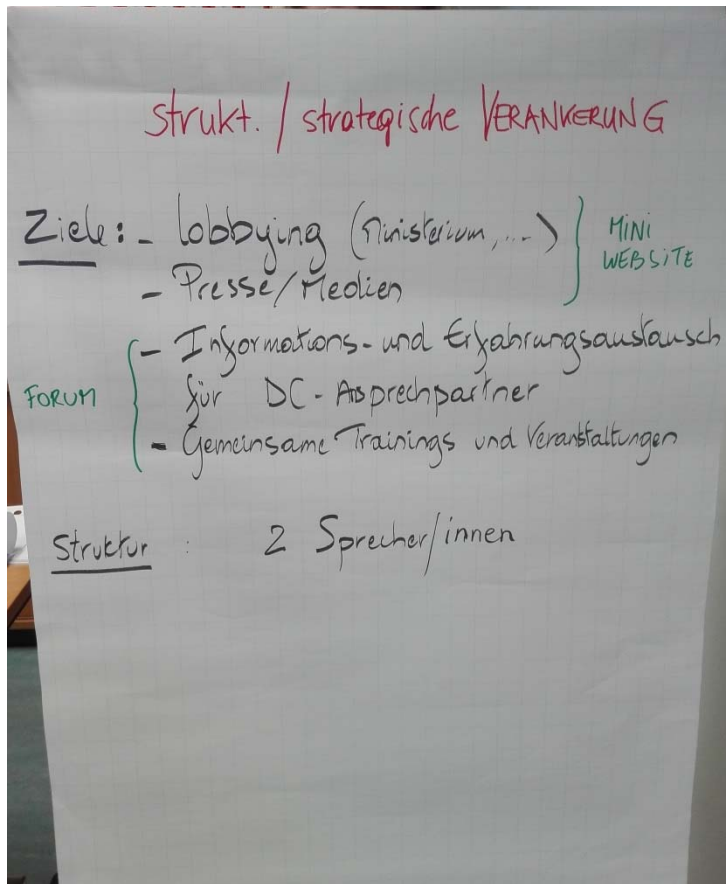 strukt. / strategische VERANKERUNG
Ziele: - Lobbying (Ministerium, ...) } MINI WEBSITE
- Presse/Medien
FORUM { - Informations- und Erfahrungsaustausch
für DC-Asprechpartner
- Gemeinsame Trainings und Veranstaltungen
Struktur : 2 Sprecher/innen